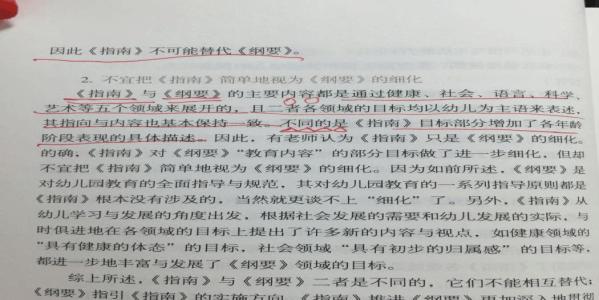 因此《指南》不可能替代《纲要》。
2. 不宜把《指南》简单地视为《纲要》的细化
《指南》与《纲要》的主要内容都是通过健康、社会、语言、科学、
艺术等五个领域来展开的，且二者各领域的目标均以幼儿为主语来表述，
其指向与内容也基本保持一致。不同的是《指南》目标部分增加了各年龄
阶段表现的具体描述。因此，有老师认为《指南》只是《纲要》的细化。
的确，《指南》对《纲要》“教育内容”的部分目标做了进一步细化，但却
不宜把《指南》简单地视为《纲要》的细化。因为如前所述，《纲要》是
对幼儿园教育的全面指导与规范，其对幼儿教育的一系列指导原则都是
《指南》根本没有涉及的，当然就更谈不上“细化”了。另外，《指南》从
幼儿学习与发展的角度出发，根据社会发展的需要和幼儿发展的实际，与
时俱进地在各领域的目标上提出了许多新的内容与视点，如健康领域的
“具有健康的体态”的目标，社会领域“具有初步的归属感”的目标等，
都进一步地丰富与发展了《纲要》领域的目标。
综上所述，《指南》与《纲要》二者是不同的，它们不能相互替代；
《纲要》指引《指南》的实施方向，《指南》推进《纲要》更加深入地贯彻